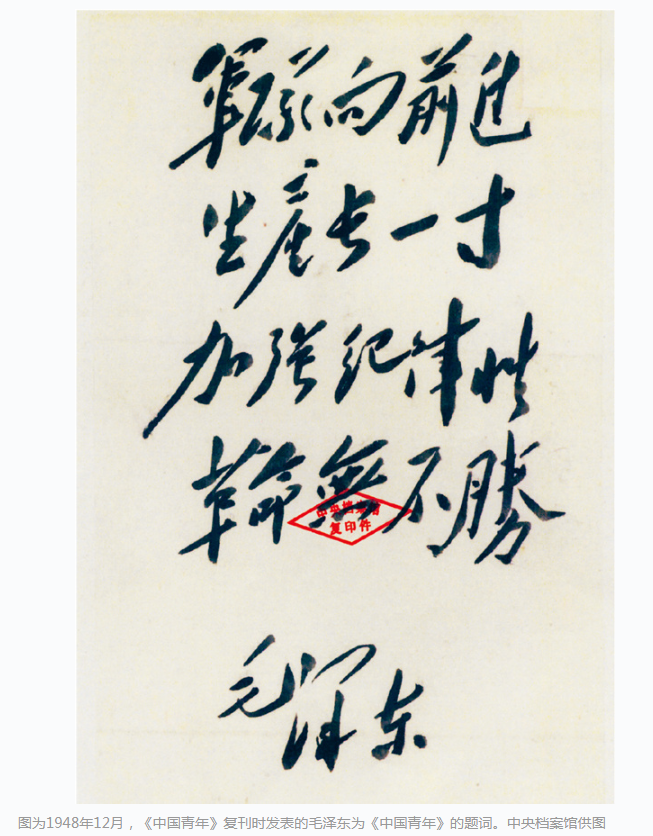 軍隊向前進
生產長一寸
加強紀律性
革命無不勝
中央档案馆
复印件
毛泽东
图为1948年12月，《中国青年》复刊时发表的毛泽东为《中国青年》的题词。中央档案馆供图